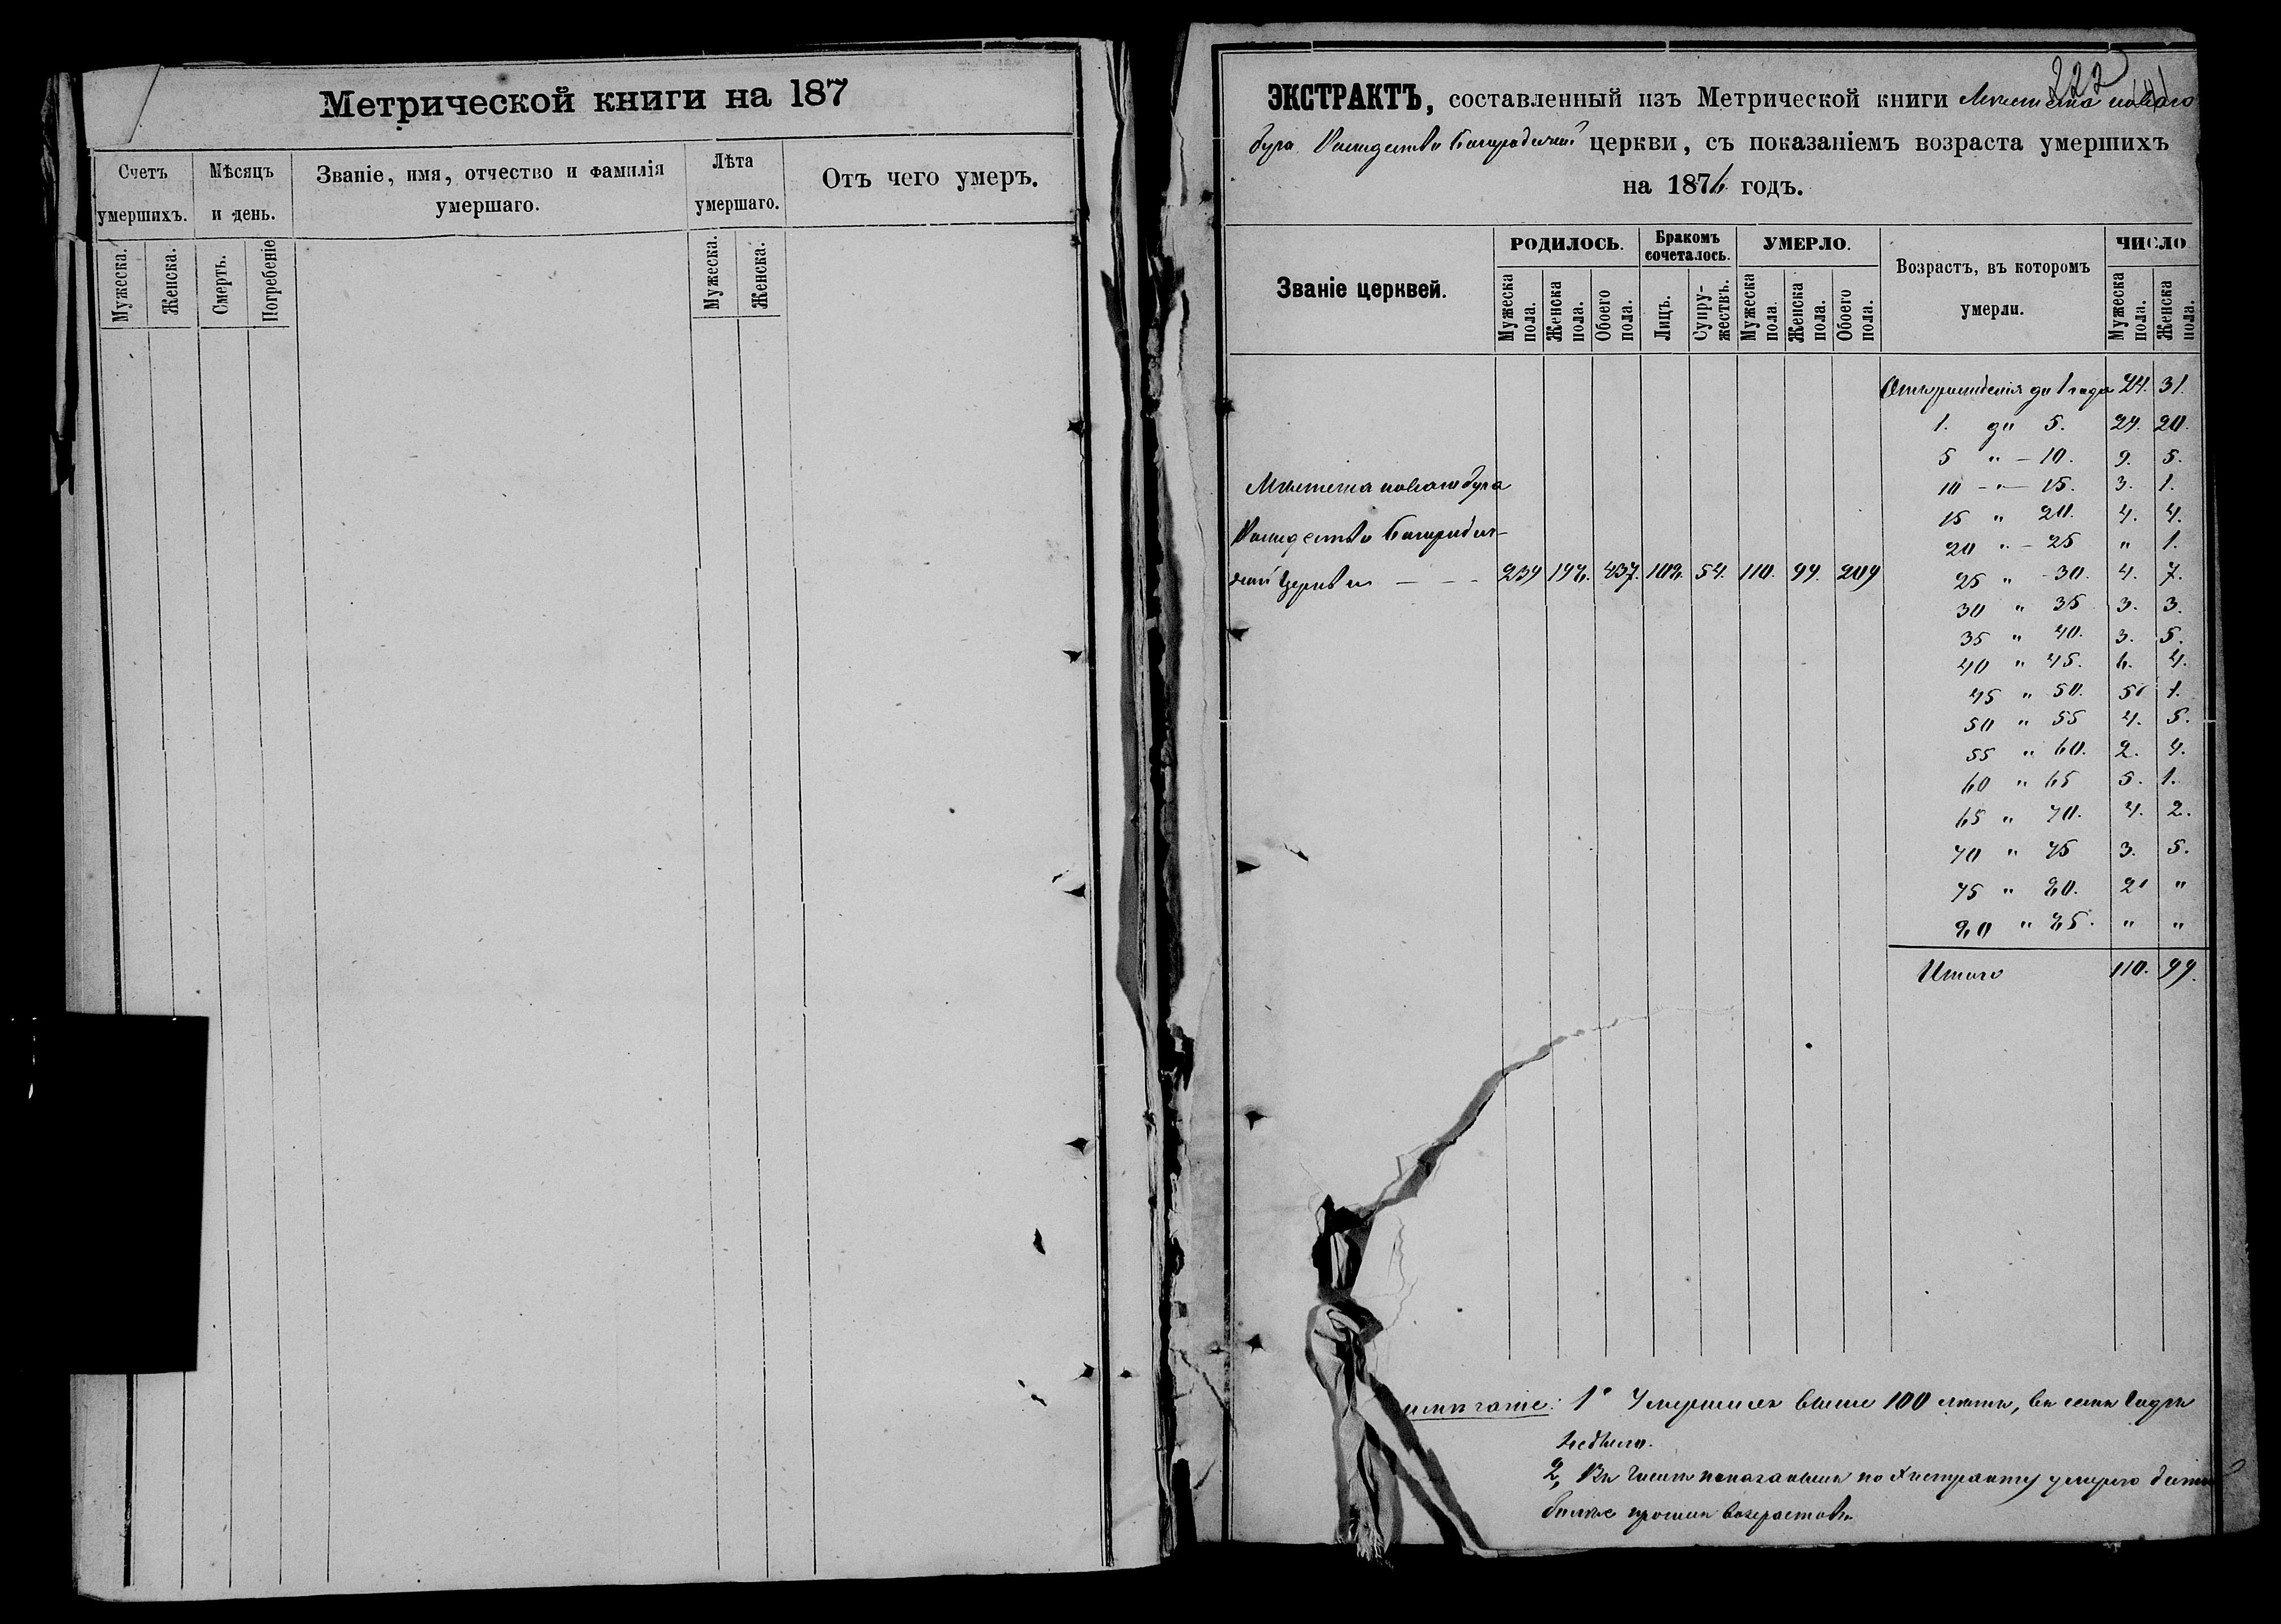 Метрической книги на 187
Счетъ умершихъ.
Мѣсяцъ и день.
Званіе, имя, отчество и фамилія умершаго.
Лѣта умершаго.
Отъ чего умеръ.
Мужеска.
Женска.
Смерть.
Погребеніе
Мужеска.
Женска.
222
ЭКСТРАКТЪ, составленный изъ Метрической книги Мѣстечка новаго
буга Рождество Богородичной церкви, съ показаніемъ возраста умершихъ
на 1876 годъ.
Званіе церквей.
РОДИЛОСЬ.
Бракомъ сочеталось.
УМЕРЛО.
Возрастъ, въ которомъ умерли.
ЧИСЛО
Мужеска пола.
Женска пола.
Обоего пола.
Лицъ.
Супру-жествъ.
Мужеска пола
Женска пола.
Обоего пола.
Мужеска пола.
Женска пола.
Отъ рожденія до 1 года 24. 31.
1. до 5. 24. 20.
5 " — 10. 9. 5.
10 — " — 15. 3. 1.
15 " 20. 4. 4.
20 " — 25 " 1.
25 " 30. 4. 7.
30 " 35 3. 3.
35 " 40. 3. 5.
40 " 45. 6. 4.
45 " 50. 5 1.
50 " 55 4. 5.
55 " 60. 2. 4.
60 " 65 5. 1.
65 " 70. 4. 2.
70 " 75 3. 5.
75 " 80. 2 "
80 " 85. " "
Итого 110. 99.
Мѣстечка новаго буга
Рождество Богородич-
ной Церкви — — — 239 198. 437. 108. 54. 110. 99. 209
имѣчаніе: 1° Умершихъ выше 100 лѣтъ, въ семъ годѣ
небыло.
2, Въ числѣ показанныхъ по Экстракту умерло дѣтей
болѣе прочихъ возрастовъ.